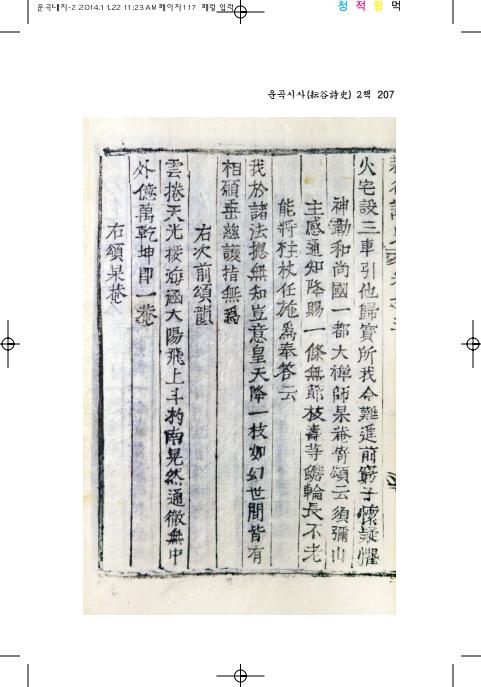 운곡내지-2 2014.11.22 11:23 AM 페이지117 매렬 출력
청 적 황 먹
운곡시사(耘谷詩史) 2책 207
火宅設三車引他歸寶所我今難進前窮子懷疑懼
神勤和尚國一都大禅師杲菴寄頌云須彌山
主感通知降賜一條無節枝壽等蟾輪長不老
能將柱杖任施爲奉答云
我於諸法揔無知豈意皇天降一枝如幻世間皆有
相願垂慈護指無爲
右次前頌韻
雲捲天光接海涵大陽飛上斗杓南晃然通徹無中
外億萬乾坤即一菴
右頌杲菴